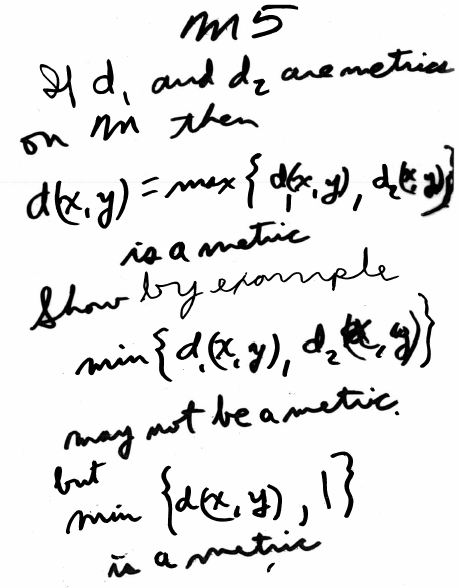 M5
If d₁ and d₂ are metrics
on M then
d(x,y) = max { d₁(x,y), d₂(x,y)}
is a metric
Show by example
min { d₁(x,y), d₂(x,y)}
may not be a metric.
but
min {d(x,y), 1}
is a metric.